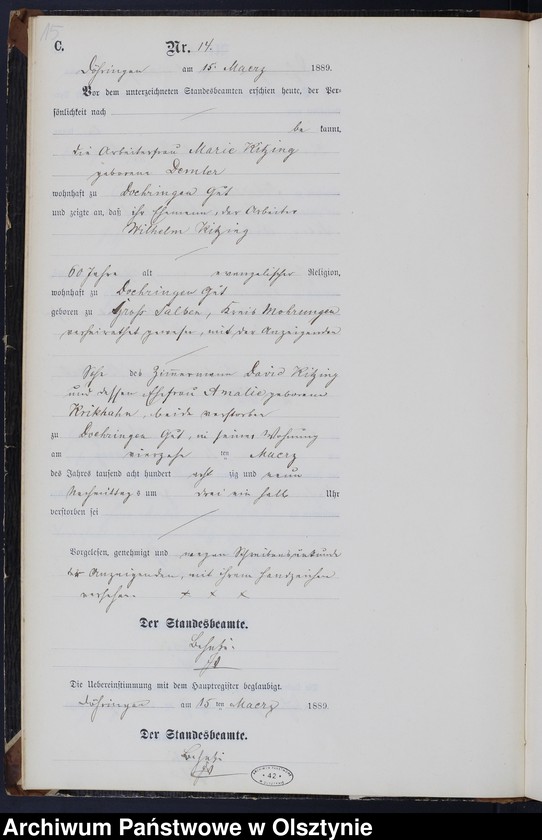 15
C.
Nr. 14.
Döhringen am 15. Maerz 1889.
Vor dem unterzeichneten Standesbeamten erschien heute, der Per-
sönlichkeit nach
be kannt,
die Arbeiterfrau Marie Kitzing
geborene Demler
wohnhaft zu Doehringen Gut
und zeigte an, daß ihr Ehemann, der Arbeiter
Wilhelm Kitzing
60 Jahre alt evangelischer Religion,
wohnhaft zu Doehringen Gut
geboren zu Groß Salben, Kreis Mohrungen
verheirathet gewesen, mit der Anzeigenden
Sohn des Zimmermann David Kitzing
und dessen Ehefrau Amalie geborene
Krikhahn, beide verstorben
zu Doehringen Gut, in seiner Wohnung
am vierzehn ten Maerz
des Jahres tausend acht hundert acht zig und neun
Nachmittags um drei ein halb Uhr
verstorben sei
Vorgelesen, genehmigt und wegen Schreibensunkunde
der Anzeigenden, mit ihrem Handzeichen
versehen + + +
Der Standesbeamte.
Die Uebereinstimmung mit dem Hauptregister beglaubigt.
Döhringen am 15 ten Maerz 1889.
Der Standesbeamte.
42
Archiwum Państwowe w Olsztynie